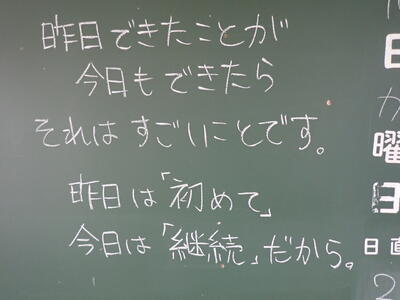 昨日できたことが
今日もできたら
それはすごいことです。
昨日は「初めて」
今日は「継続」だから。
日
曜
日
日直
2